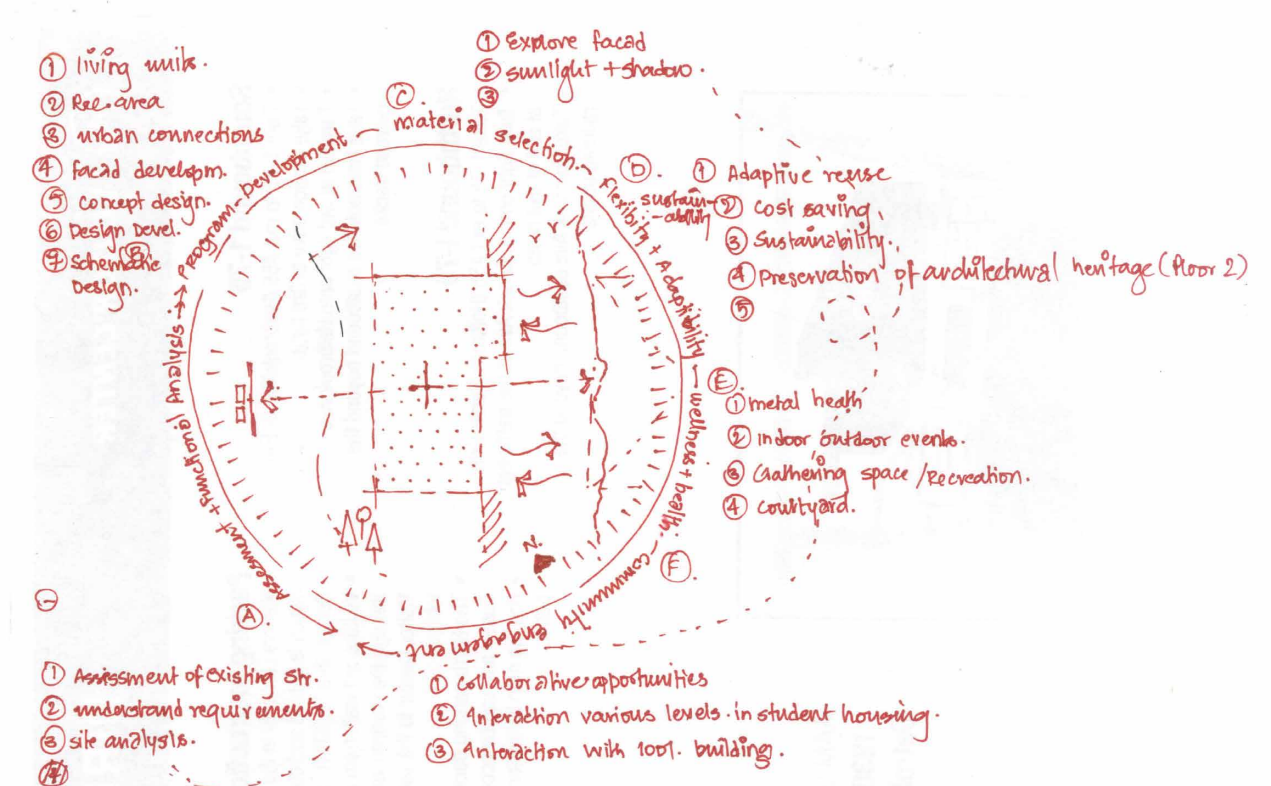 ① living units.
② Rec. area
③ urban connections
④ facad developm.
⑤ concept design.
⑥ Design Devel.
⑦ Schematic
Design.
① Explore facad
② sunlight + shadow.
③
Ⓐ.
Assessment + Functional Analysis
Ⓑ
Program - Development
Ⓒ.
material selection.
Ⓓ.
Flexibility + Adaptibility
sustain-
-ability
① Adaptive reuse
② cost saving
③ Sustainability.
④ Preservation of architectural heritage (floor 2)
⑤
Ⓔ
wellness + health.
① metal heath
② indoor outdoor events.
③ Gathering space / Recreation.
④ courtyard.
N.
Ⓕ.
community engagement
① Assissment of existing str.
② understand requirements.
③ site analysis.
④
① collaborative opportunities
② Interaction various levels. in student housing.
③ Interaction with building.